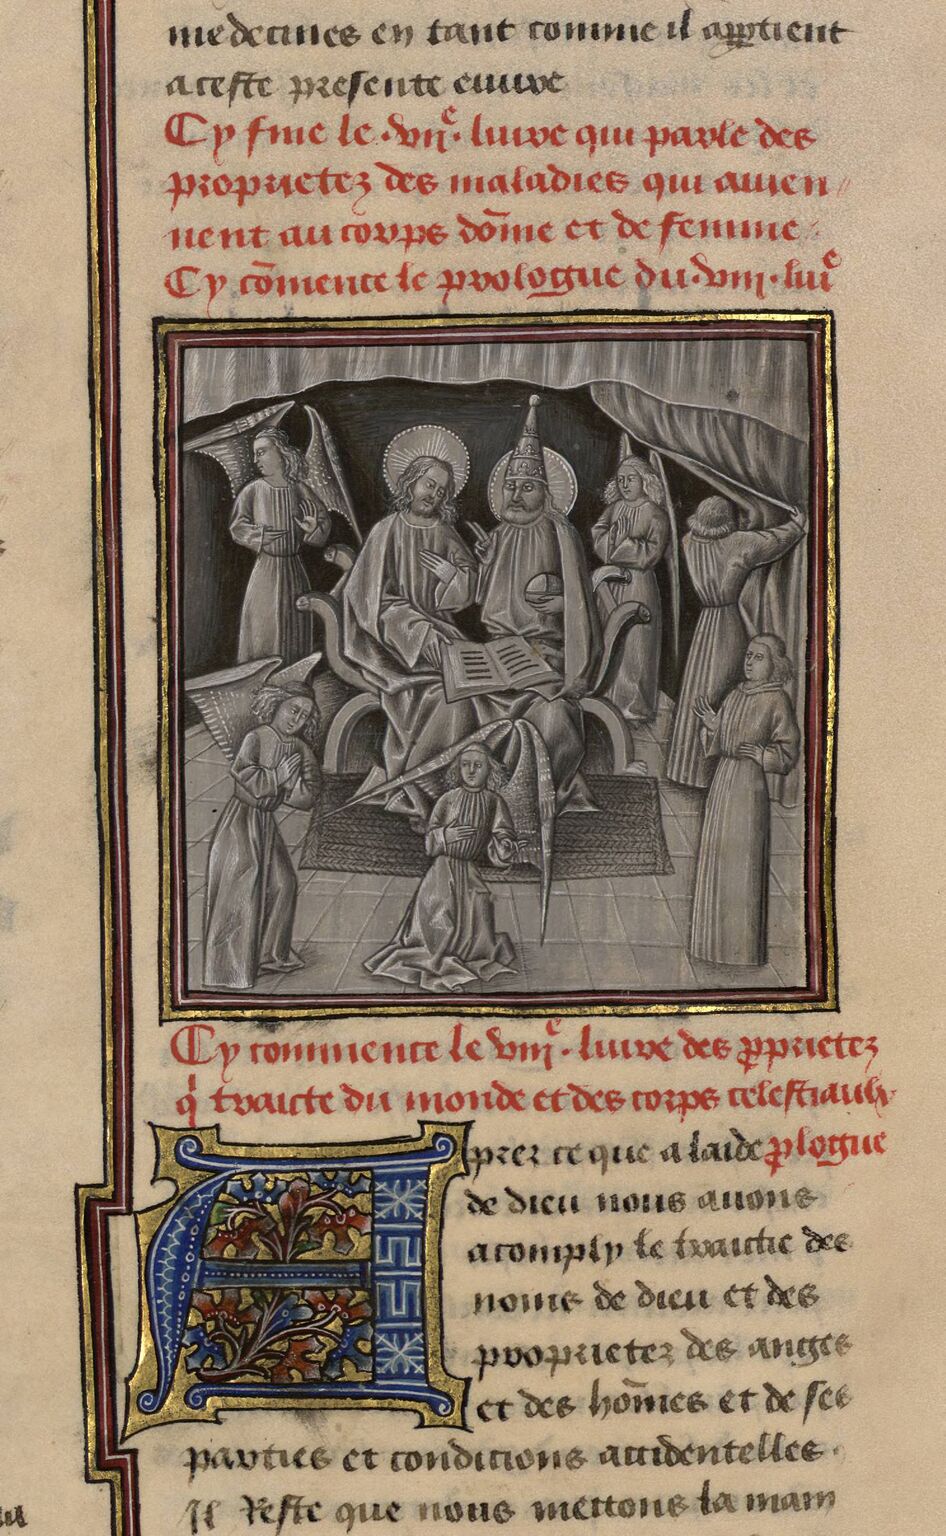 medecines en tant comme il appartient
a ceste presente euure
Cy fine le .vii.e liure qui parle des
proprietez des maladies qui auien-
nent au corps dōme et de femme
Cy cōmence le prologue du .viii. liure
Cy commence le viii.e liure des pprietez
q̇ traicte du monde et des corps celestiaulx
Aprez ce que a laide plogue
de dieu nous auons
acomply le traictie des
noms de dieu et des
proprietez des anges
et des hōmes et de ses
parties et condicions accidentelles.
Il Reste que nous mettons la main